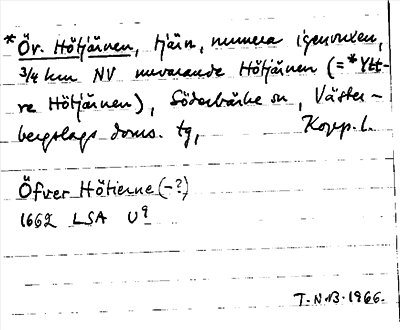 *Öv. Hötjärnen, tjärn, numera igenvuxen,
3/4 km NV nuvarande Hötjärnen (=*Ytt-
re Hötjärnen), Söderbärke sn, Väster-
bergslags doms. tg, Kopp. l.
Öfver Hötierne (-?)
1662 LSA U9
T.N.B. 1966.